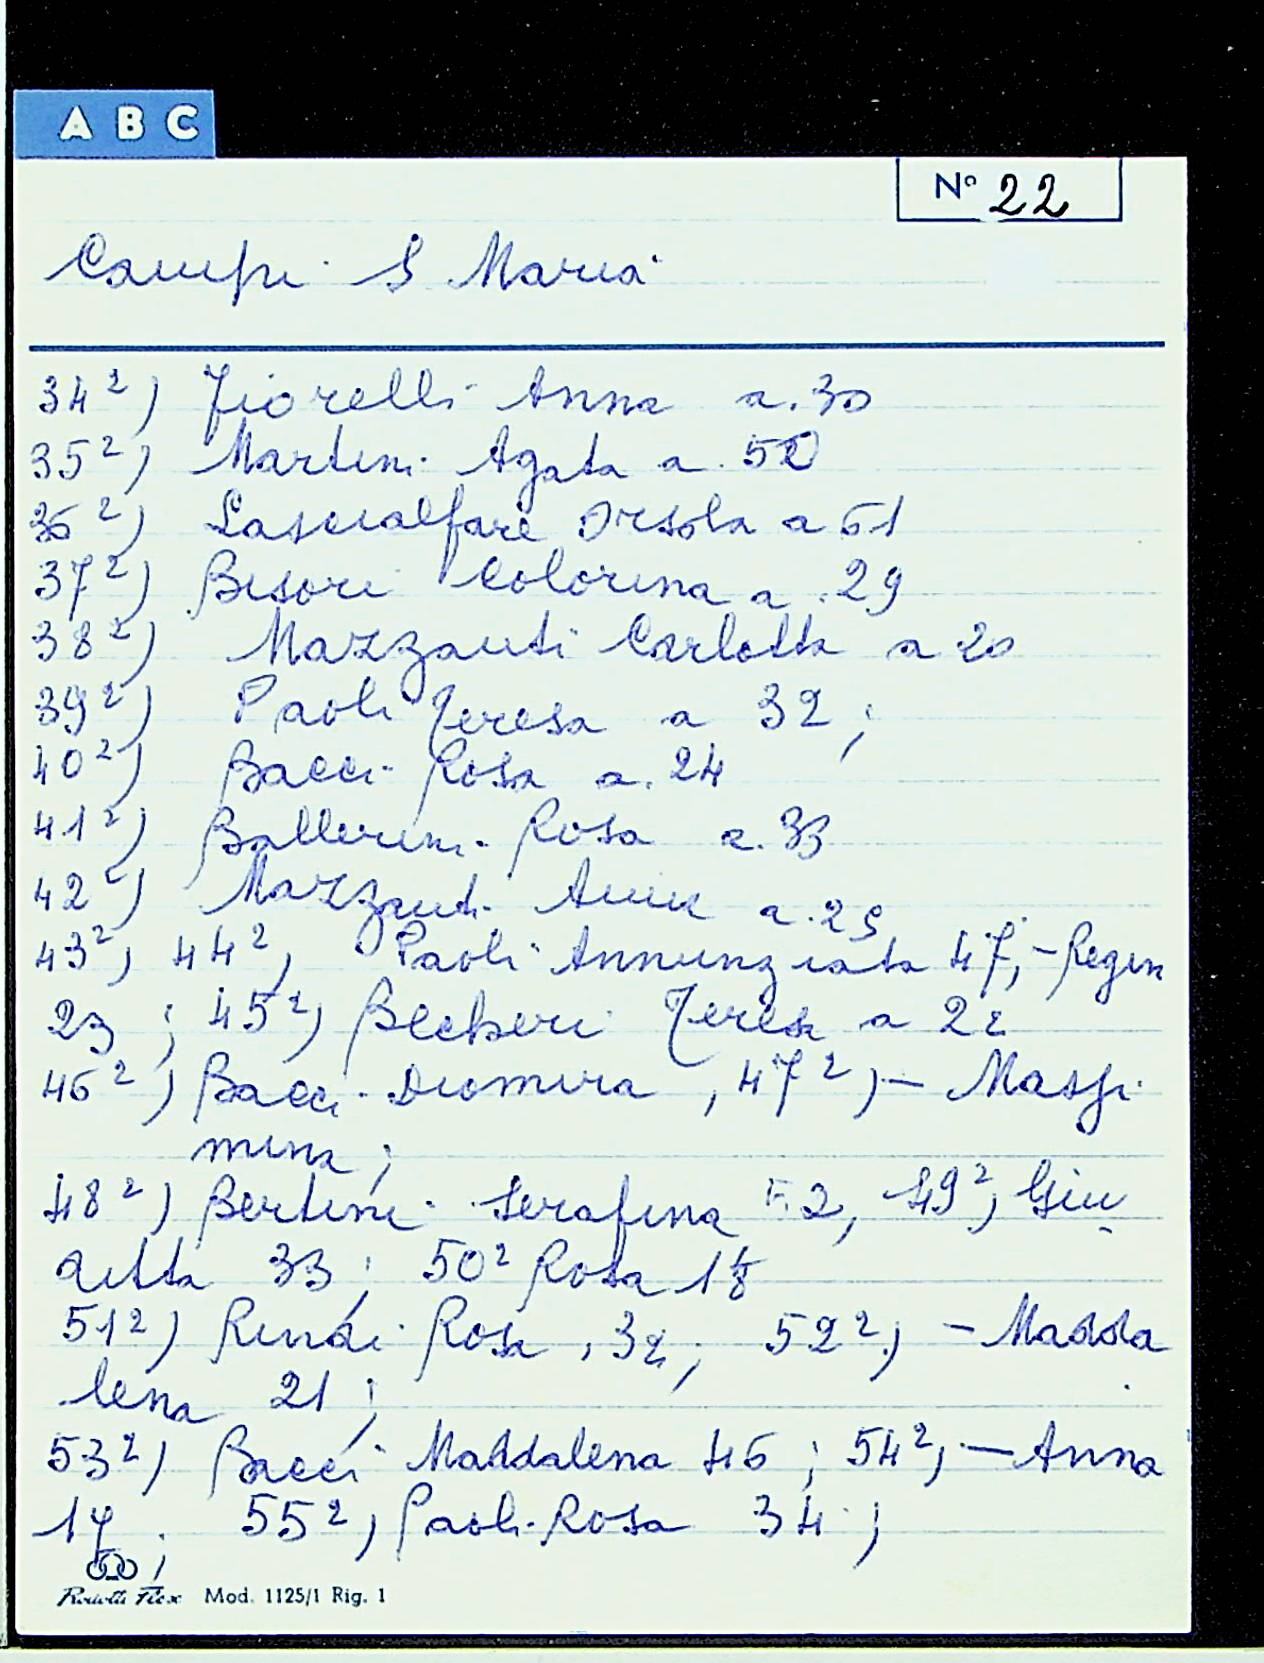 A B C
Nº 22
Campi S Maria
34²) Fiorelli Anna a. 30
35²) Martini Agata a. 50
36²) Lascialfare Orsola a 61
37²) Bisori Colorina a. 29
38²) Mazzanti Carlotta a 20
39²) Paoli Teresa a 32;
40²) Bacci Rosa a. 24
41²) Ballerini Rosa a. 33
42²) Mazzanti a. 25
43², 44², Paoli Annunziata 47, - Regin
23; 45²) Teresa a 22
46²) Bacci Diomira, 47²) - Massi
mina;
48²) Bertini Serafina 52, 49², Giu
ditta 33; 50² Rosa 18
51²) Rindi Rosa, 32; 52²) - Madda
lena 21;
53²) Bacci Maddalena 46; 54², - Anna
17; 55², Paoli Rosa 34;
Mod. 1125/1 Rig. 1